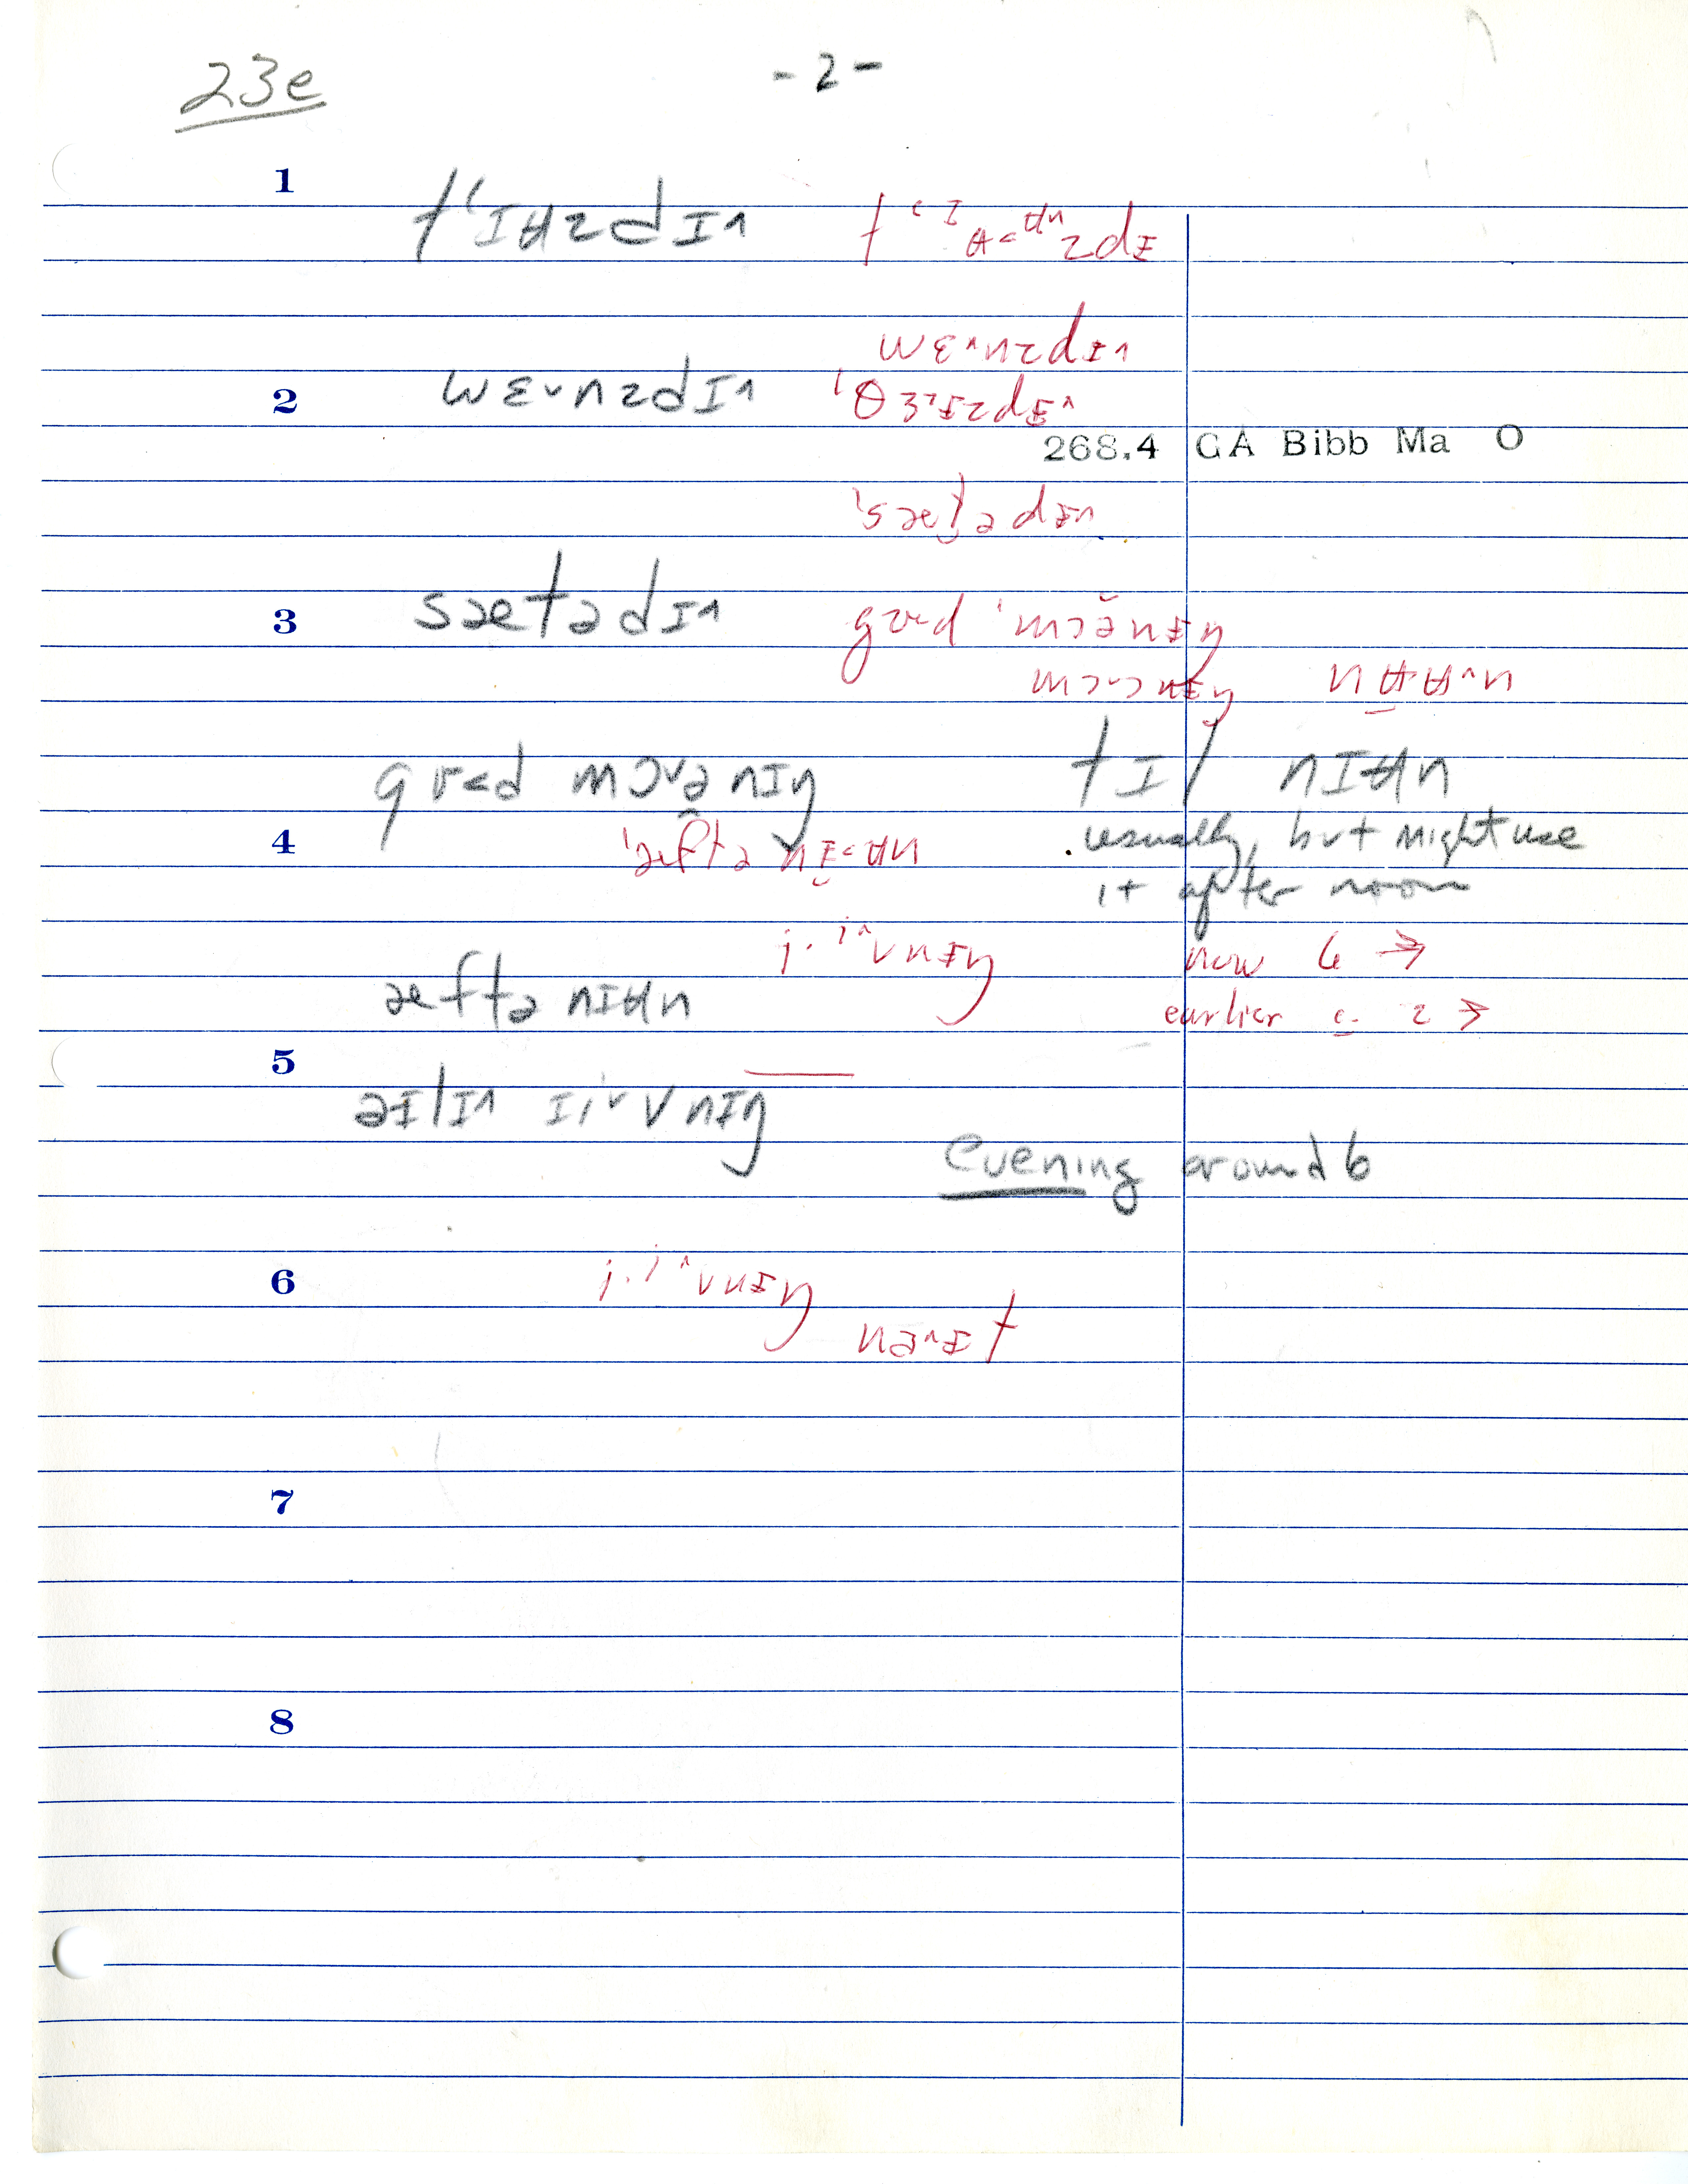 23e
- 2 -
1
tʻɪʉzdɪ^
wɛ^nzdɪ^
2
wɛ˅nzdɪ^
268.4 GA Bibb Ma O
'sæt̬ədɪ̵^
3
sætədɪ^
gʊd 'mɔə̆nɪ̵ŋ
gʊ<d mɔ˅ənɪŋ
tɪl nɪʉn
4
usually, but might use
it after noon
i·i^vnɪ̵ŋ
now 6 →
æftənɪʉn
earlier c. 2 →
5
əɪ̵lɪ^ ɪi˅vnɪŋ
evening around 6
6
i·i^vnɪ̵ŋ
na^ɪ̵t
7
8